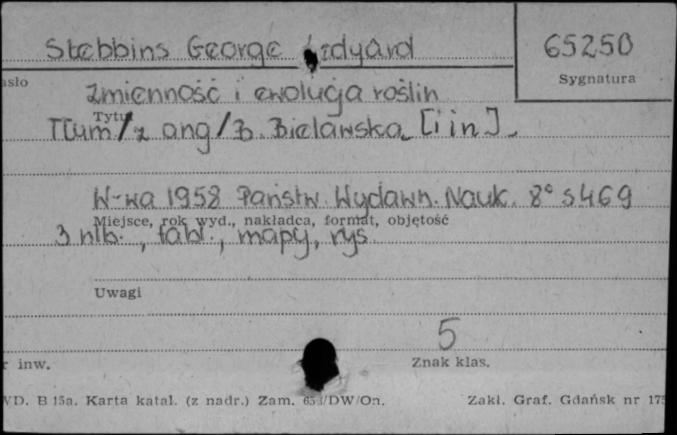 Stebbins George Ledyard 65250
asło Sygnatura
Zmienność i ewolucja roślin
Tytuł
Tłum/z ang/B. Bielawska [i in].
W-wa 1958 Państw. Wydawn. Nauk. 8° s 469
Miejsce, rok wyd., nakładca, format, objętość
3 nlb., tabl., mapy, rys.
Uwagi
5
r inw. Znak klas.
VD. B 15a. Karta katal. (z nadr.) Zam. /DW/On. Zakl. Graf. Gdańsk nr 175